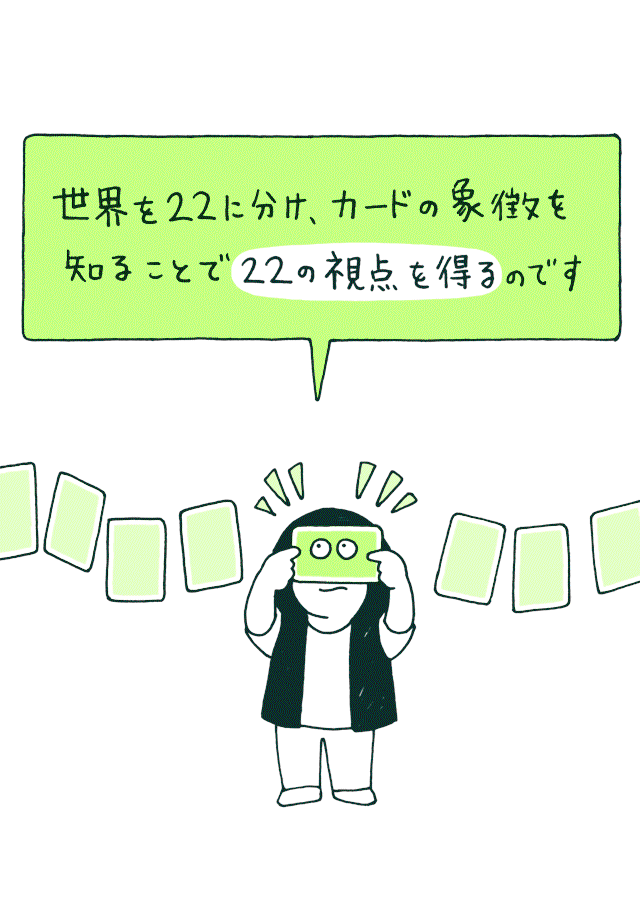 世界を22に分け、カードの象徴を
知ることで22の視点を得るのです